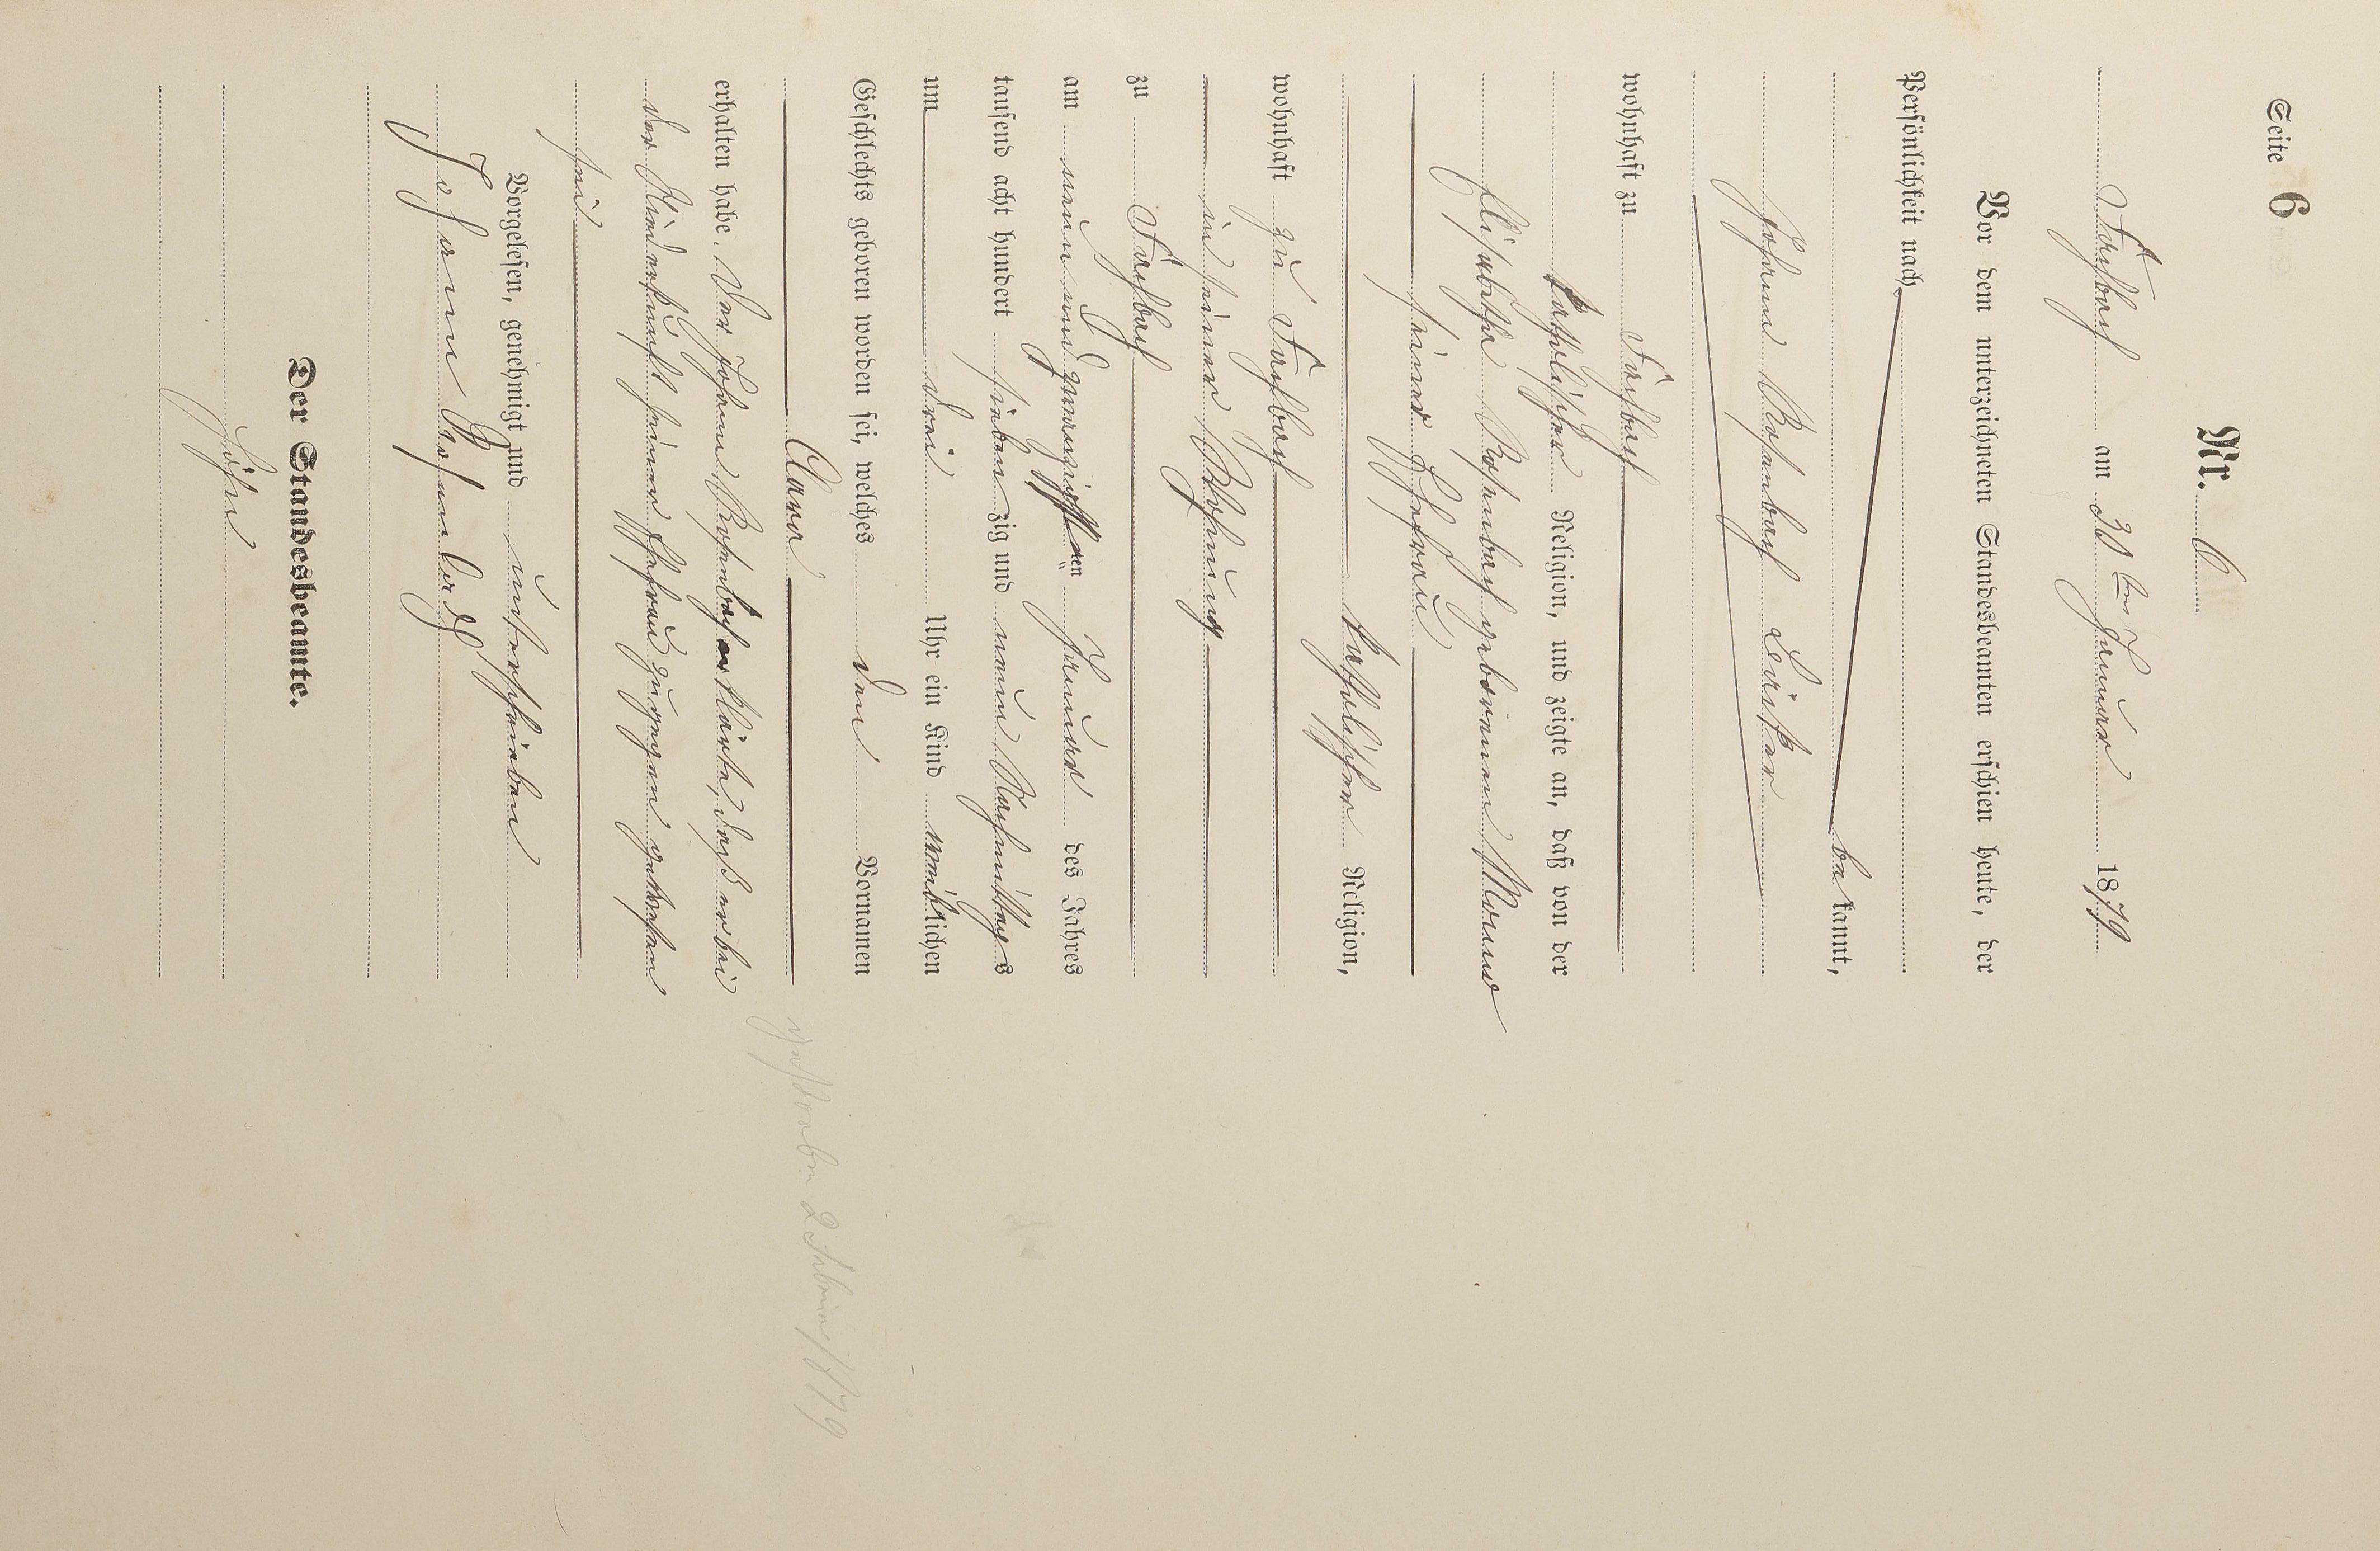 Seite 6
Nr. 6
Faulbach am 30ten Januar 1879
Vor dem unterzeichneten Standesbeamten erschien heute, der
Persönlichkeit nach
bekannt,
Johann Rosenbach
wohnhaft zu Faulbach
katholischer Religion, und zeigte an, daß von der
Elisabetha Rosenbach geborenen
seiner Ehefrau
katholischer Religion,
wohnhaft zu Faulbach
in seiner Wohnung
zu Faulbach
am neun und zwanzigsten Januar des Jahres
tausend acht hundert siebenzig und neun Nachmittags
um drei Uhr ein Kind weiblichen
Geschlechts geboren worden sei, welches den Vornamen
Clara
erhalten habe. Der Johann Rosenbach erklärte, daß er bei
der Niederkunft seiner Ehefrau zugegen gewesen
sei
gestorben 2 1879
Vorgelesen, genehmigt und unterschrieben
Johann Rosenbach
Der Standesbeamte.